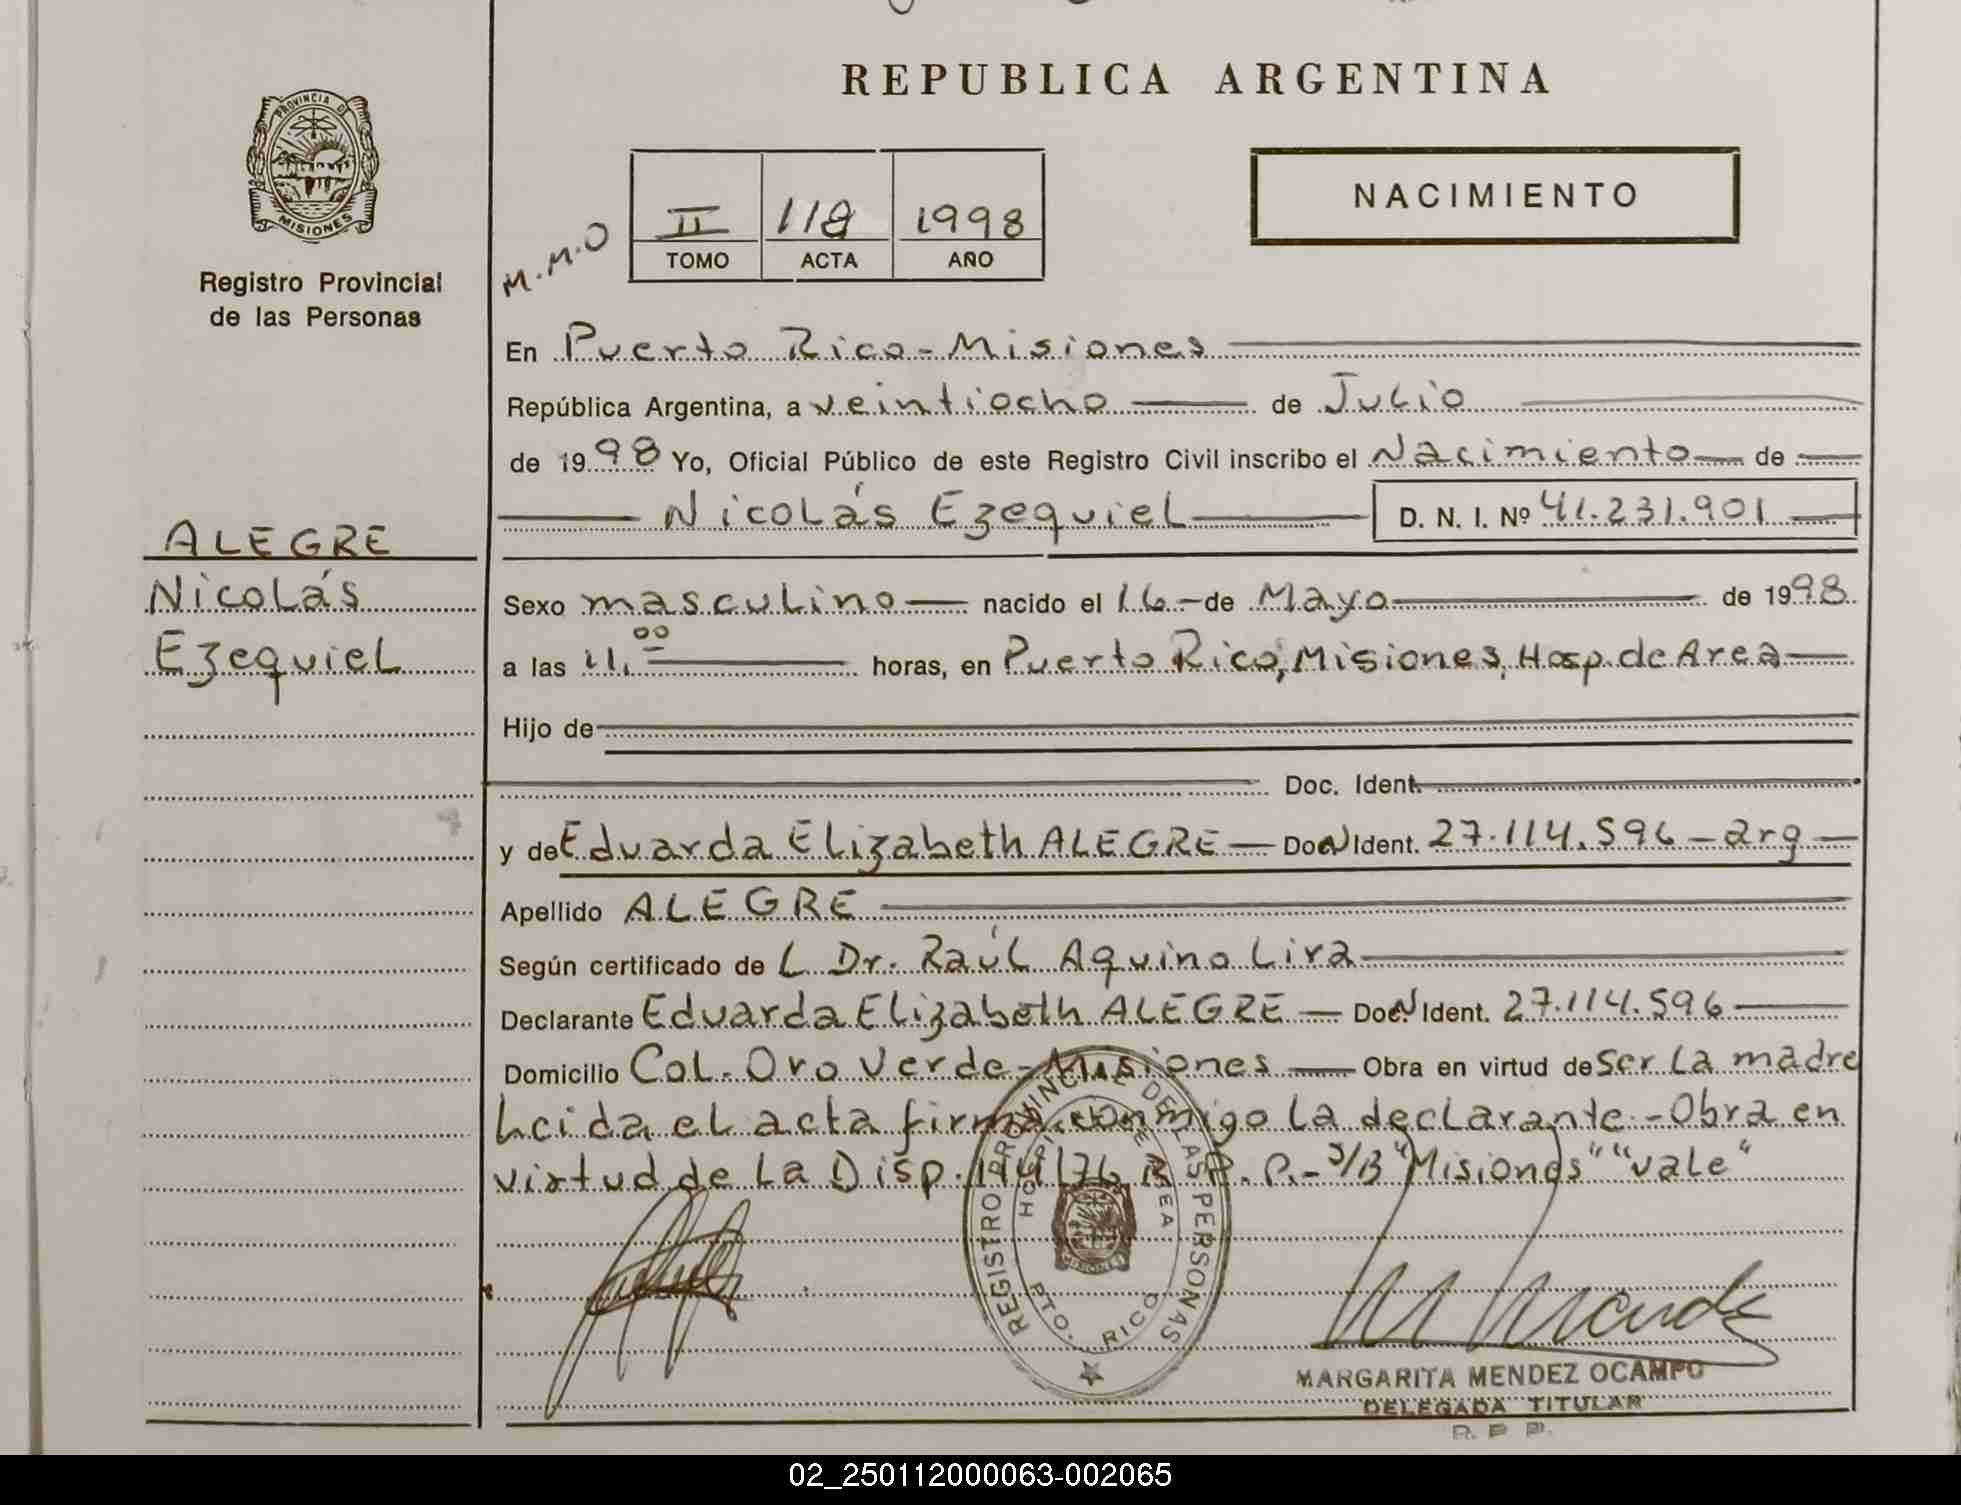 REPUBLICA ARGENTINA
PROVINCIA DE
MISIONES
Registro Provincial
de las Personas
M.M.O
II 118 1998
TOMO ACTA AÑO
NACIMIENTO
En Puerto Rico - Misiones
República Argentina, a veintiocho de Julio
de 1998 Yo, Oficial Público de este Registro Civil inscribo el Nacimiento de
Nicolás Ezequiel D. N. I. Nº 41.231.901
ALEGRE
Nicolás
Ezequiel
Sexo masculino nacido el 16 - de Mayo de 1998
a las 11.00 horas, en Puerto Rico, Misiones, Hosp. de Area
Hijo de
Doc. Ident.
y de Eduarda Elizabeth ALEGRE - DocN Ident. 27.114.596 - arg
Apellido ALEGRE
Según certificado de L Dr. Raúl Aquino Lira
Declarante Eduarda Elizabeth ALEGRE - DocN Ident. 27.114.596
Domicilio Col. Oro Verde - Misiones - Obra en virtud de ser la madre
Leida el acta firma conmigo la declarante - Obra en
virtud de la Disp. 114/76 R. P. P. - S/B "Misiones" "vale"
REGISTRO PROVINCIAL DE LAS PERSONAS
HOSPITAL DE AREA
MISIONES
PTO. RICO
MARGARITA MENDEZ OCAMPO
DELEGADA TITULAR
R. P. P.
02_250112000063-002065